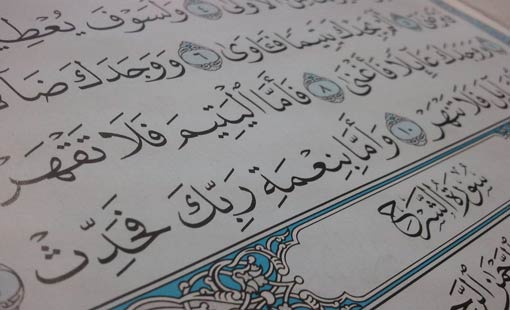 وَلَسَوْفَ يُعْطِي
أَلَمْ يَجِدْكَ يَتِيمًا فَـَٔاوَىٰ ٦ وَوَجَدَكَ ضَا
وَوَجَدَكَ عَآئِلًا فَأَغْنَىٰ ٨ فَأَمَّا ٱلْيَتِيمَ فَلَا تَقْهَرْ
فَلَا تَنْهَرْ ١٠ وَأَمَّا بِنِعْمَةِ رَبِّكَ فَحَدِّثْ
سُورَةُ الشَّرْحِ